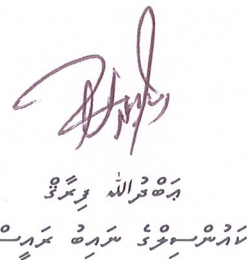 ޢަބްދުﷲ ފިރާޤް
ކައުންސިލްގެ ނައިބު ރައީސް